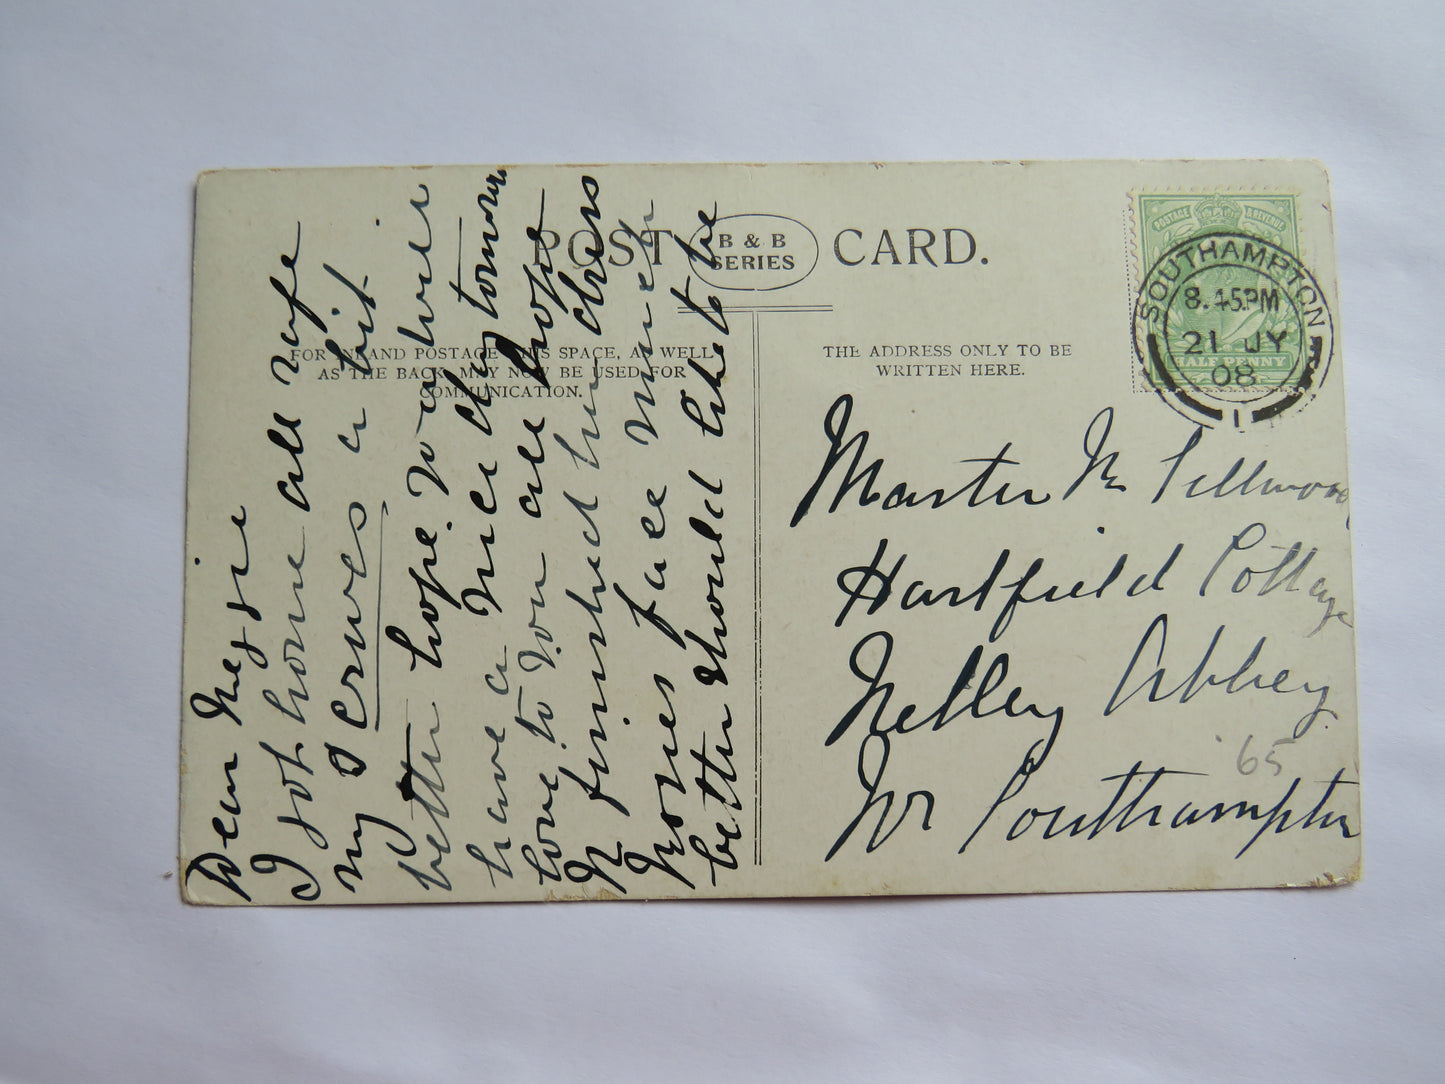 POST CARD.
B & B
SERIES
FOR INLAND POSTAGE THIS SPACE, AS WELL
AS THE BACK, MAY NOW BE USED FOR
COMMUNICATION.
THE ADDRESS ONLY TO BE
WRITTEN HERE.
POSTAGE & REVENUE
HALF PENNY
SOUTHAMPTON
8.45PM
21 JY
08
1
Dear Reggie
I got home all safe
my a bit
better hope to
have a nice day tomorrow
love to you all hope
N finished her dress
Roses face much
better should like to be
Master R Sellwood
Hartfield Cottage
Netley Abbey
Nr Southampton
65